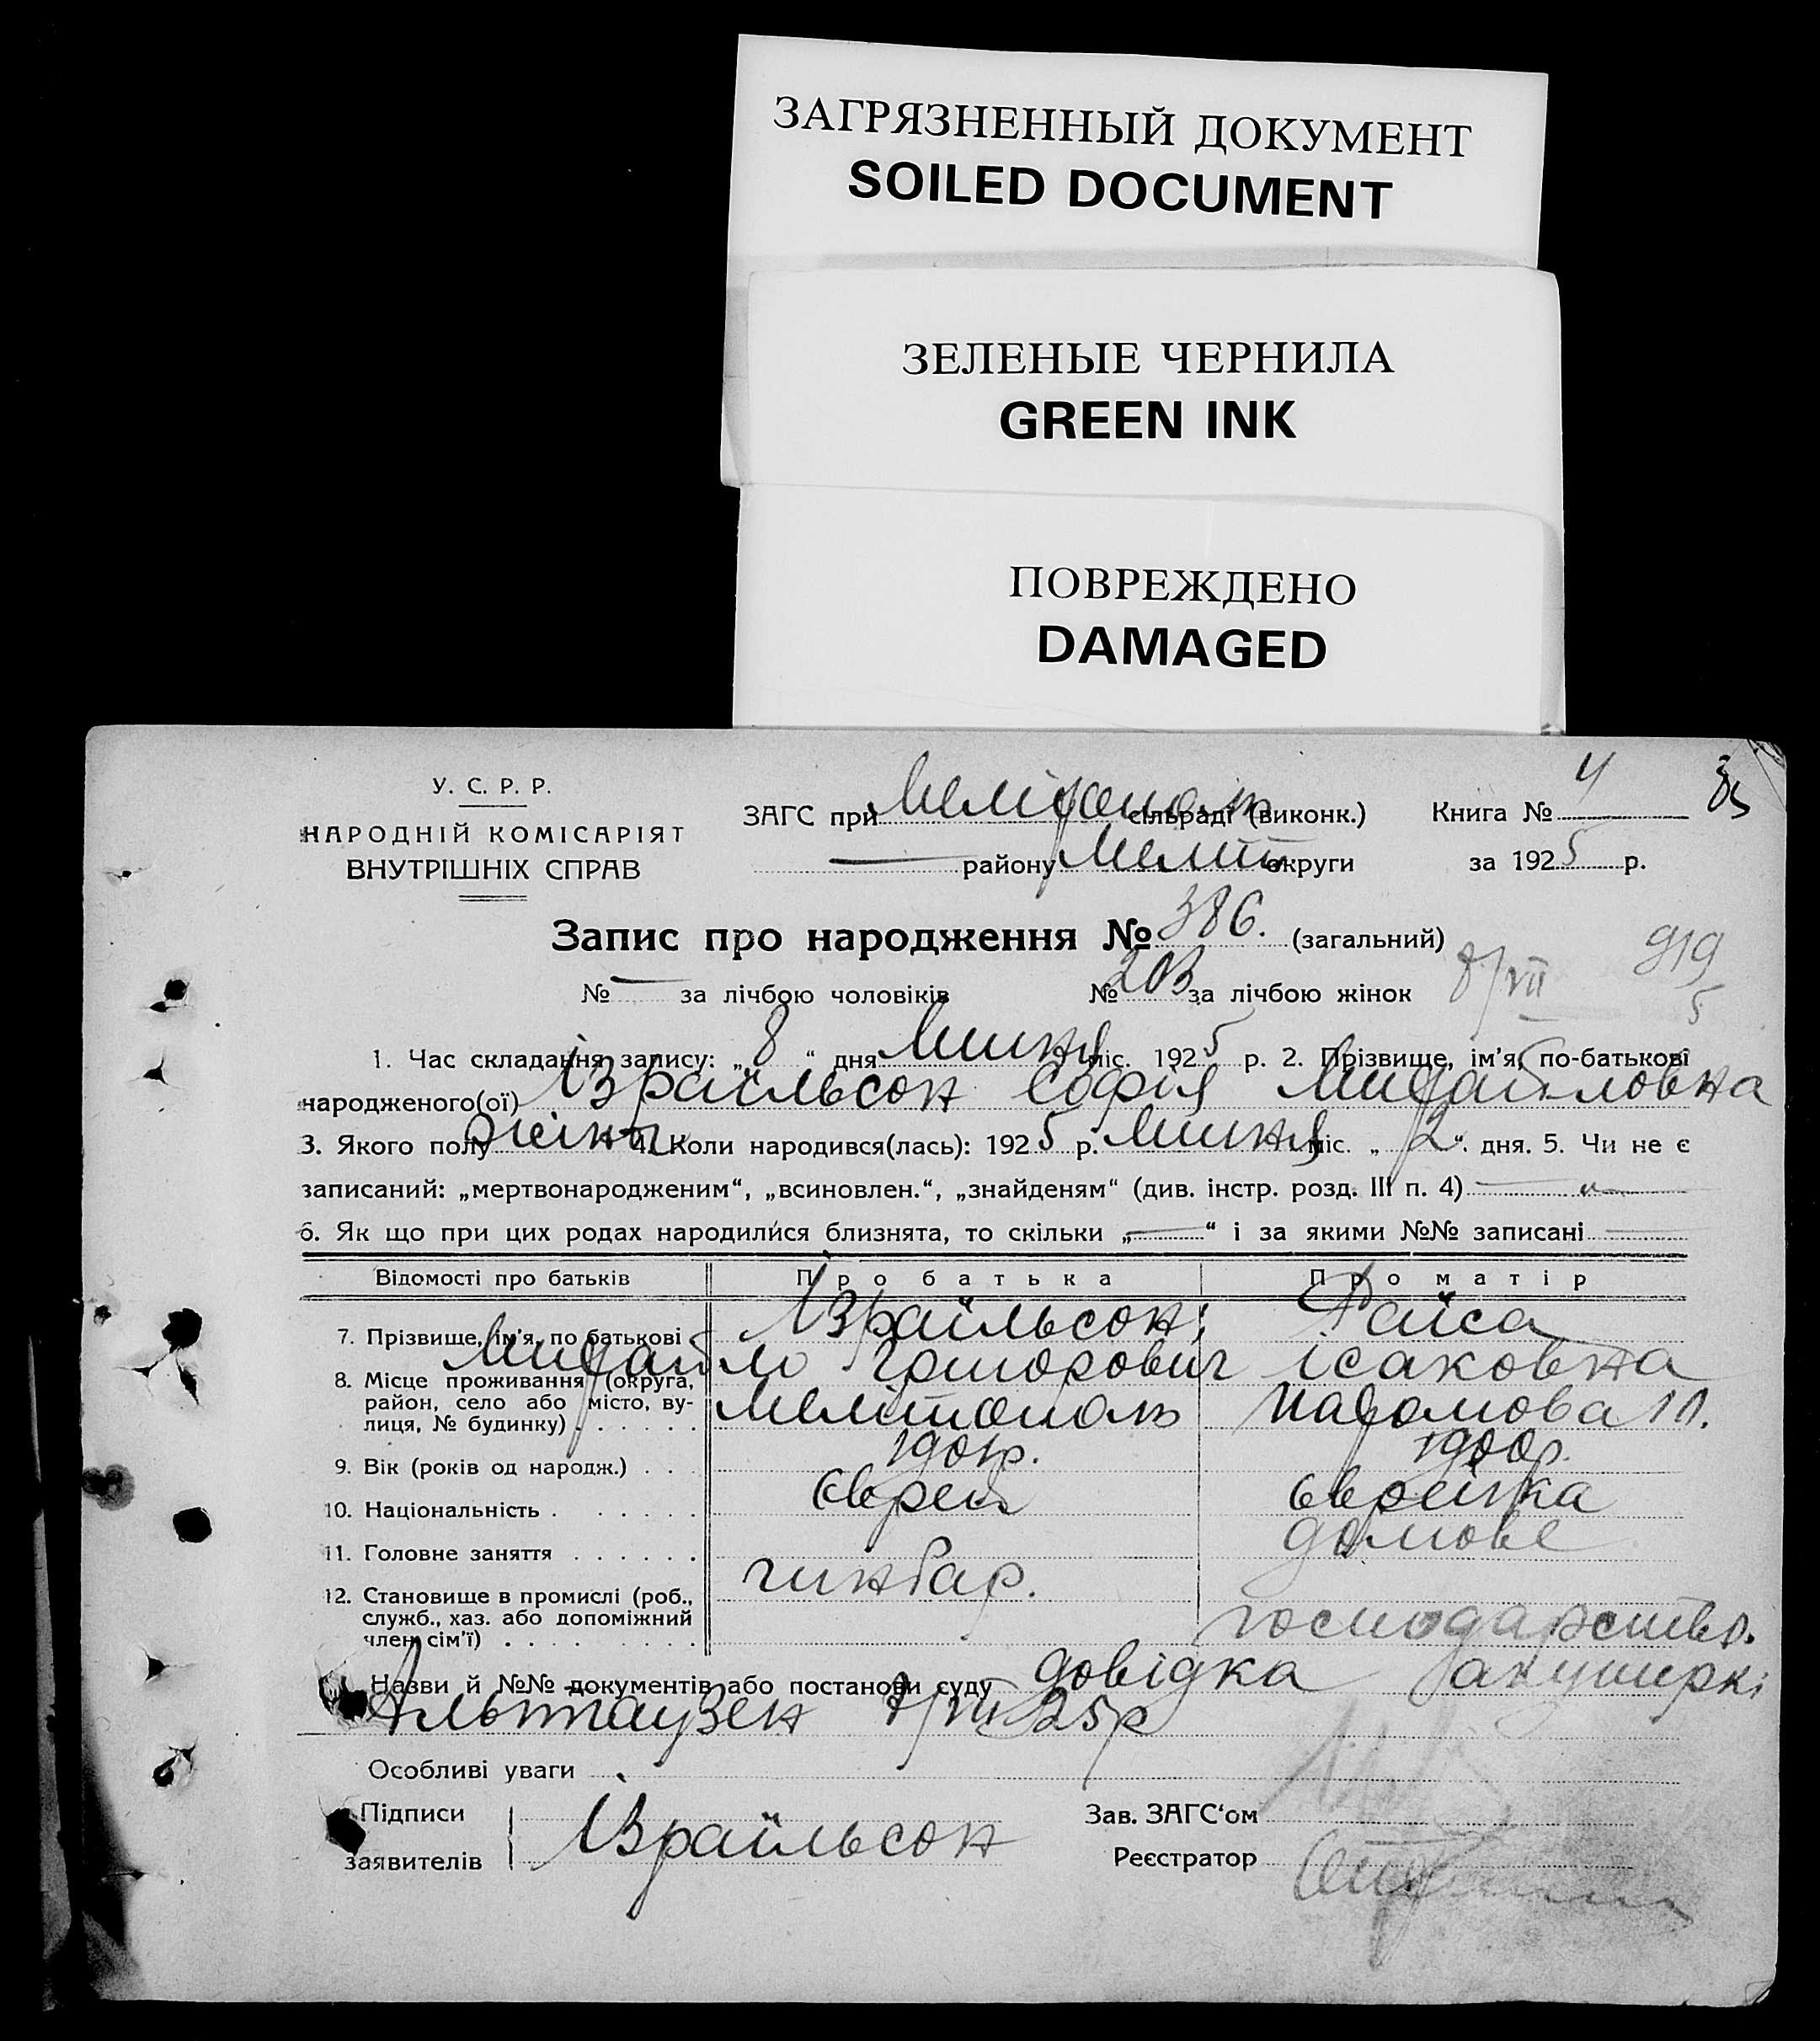 ЗАГРЯЗНЕННЫЙ ДОКУМЕНТ
SOILED DOCUMENT
ЗЕЛЕНЫЕ ЧЕРНИЛА
GREEN INK
ПОВРЕЖДЕНО
DAMAGED
У. С. Р. Р.
НАРОДНІЙ КОМІСАРІЯТ
ВНУТРІШНІХ СПРАВ
ЗАГС при Мелітополь сільраді (виконк.) Книга № 4
району Меліт округи за 1925 р.
Запис про народження № 386. (загальний) 919
№ — за лічбою чоловіків № 203 за лічбою жінок 8/VII 5
1. Час складання запису: „ 8 “ дня Липня міс. 1925 р. 2. Прізвище, ім'я, по-батькові
народженого(ої) Ізраїльсон Софія Михайловна
3. Якого полу жіноч. 4. Коли народився(лась): 1925 р. Липня міс. „ 2 “. дня. 5. Чи не є
записаний: „мертвонародженим“, „всиновлен.“, „знайденям“ (див. інстр. розд. III п. 4) — „ —
6. Як що при цих родах народилися близнята, то скільки „—“ і за якими №№ записані —
Відомості про батьків Про батька Про матір
7. Прізвище, ім'я, по батькові Ізраїльсон, Раїса
Михайло Григорович Ісаковна
8. Місце проживання (округа, район, село або місто, вулиця, № будинку) Мелітополь 11.
9. Вік (років од народж.) . . 190 р. 1900р.
10. Національність . . . . . . Єврей Єврейка
11. Головне заняття . . . . . . домове
12. Становище в промислі (роб., служб., хаз. або допоміжний член сім'ї) . . . . чинбар. господарство.
Назви й №№ документів або постанови суду довідка акушеркі
Альтгаузен 7/VII 25р
Особливі уваги
Підписи заявителів Ізраїльсон
Зав. ЗАГС'ом
Реєстратор